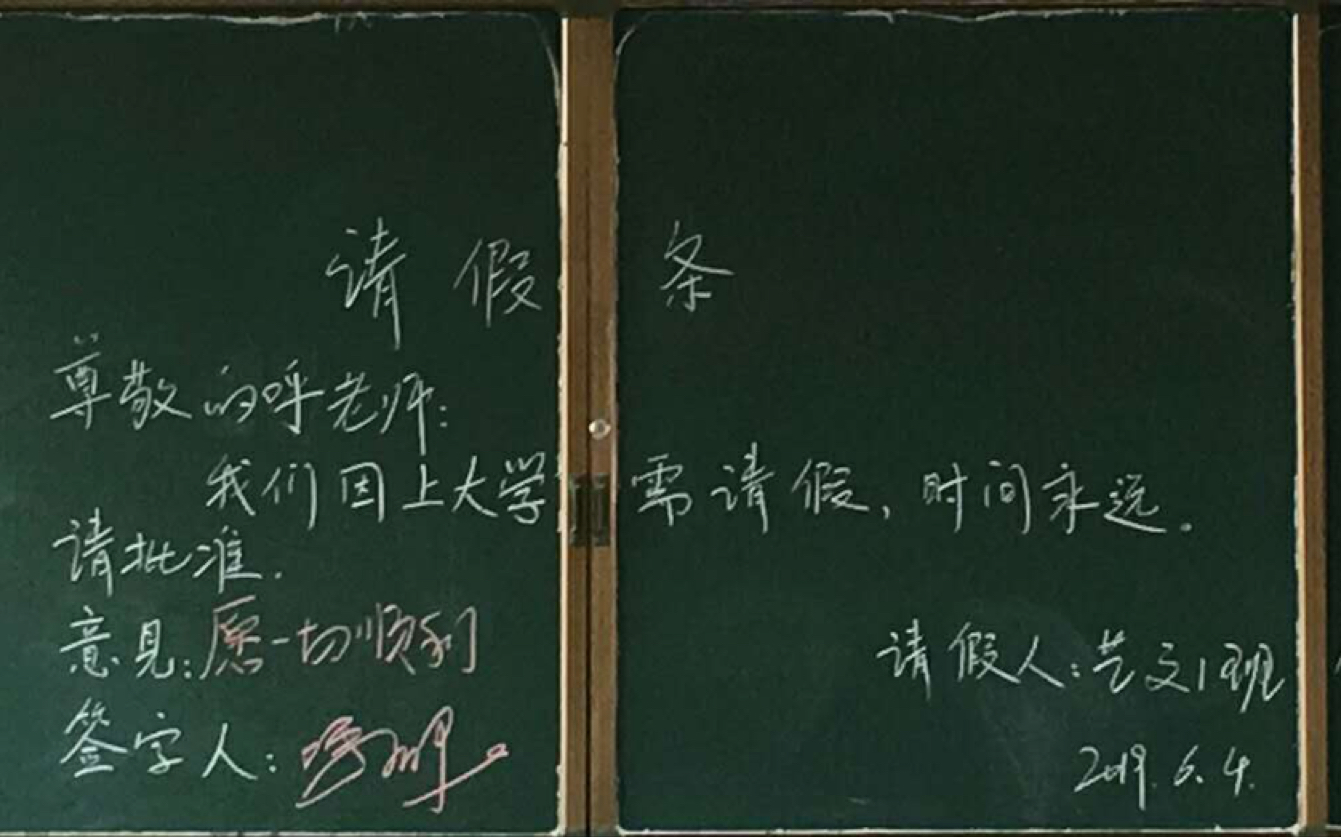 请假条
尊敬的呼老师:
我们因上大学需请假,时间永远。
请批准.
意见:愿一切顺利
签字人:
请假人:艺文1班
2019.6.4.